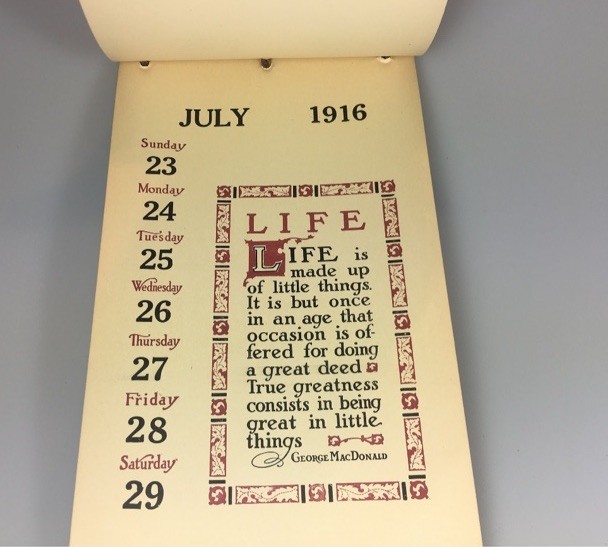 JULY 1916
Sunday
23
Monday
24
Tuesday
25
Wednesday
26
Thursday
27
Friday
28
Saturday
29
LIFE
LIFE is
made up
of little things.
It is but once
in an age that
occasion is of-
fered for doing
a great deed
True greatness
consists in being
great in little
things
GEORGE MACDONALD